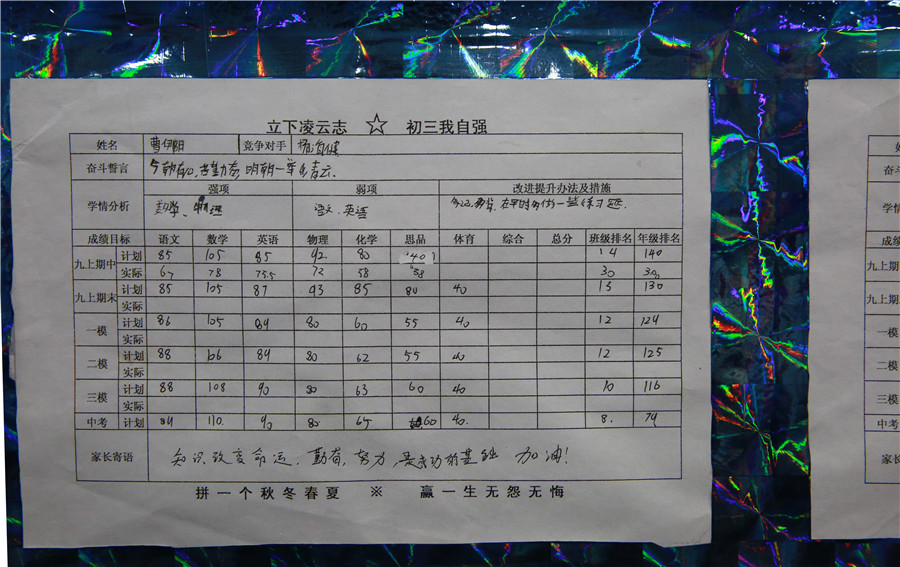 立下凌云志 ☆ 初三我自强
姓名 曹伊阳 竞争对手
奋斗誓言
学情分析 强项 弱项 改进提升办法及措施
数学、物理 语文、英语
成绩目标 语文 数学 英语 物理 化学 思品 体育 综合 总分 班级排名 年级排名
九上期中 计划 85 105 85 92 80 40 14 140
实际 67 78 75.5 72 58 58 30
九上期末 计划 85 105 87 93 85 80 40 13 130
实际
一模 计划 86 105 89 80 60 55 40 12 124
实际
二模 计划 88 106 89 80 62 55 40 12 125
实际
三模 计划 88 108 90 80 63 60 40 10 116
实际
中考 计划 89 110 90 80 65 60 40 8
家长寄语 知识改变命运，勤奋，努力，是成功的基础 加油！
拼一个秋冬春夏 ※ 赢一生无怨无悔
姓
奋斗
学情
成绩
九上期
九上期
一模
二模
三模
中考
家长